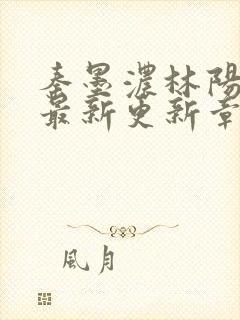 秦墨濃林陽
最新更新章
風月